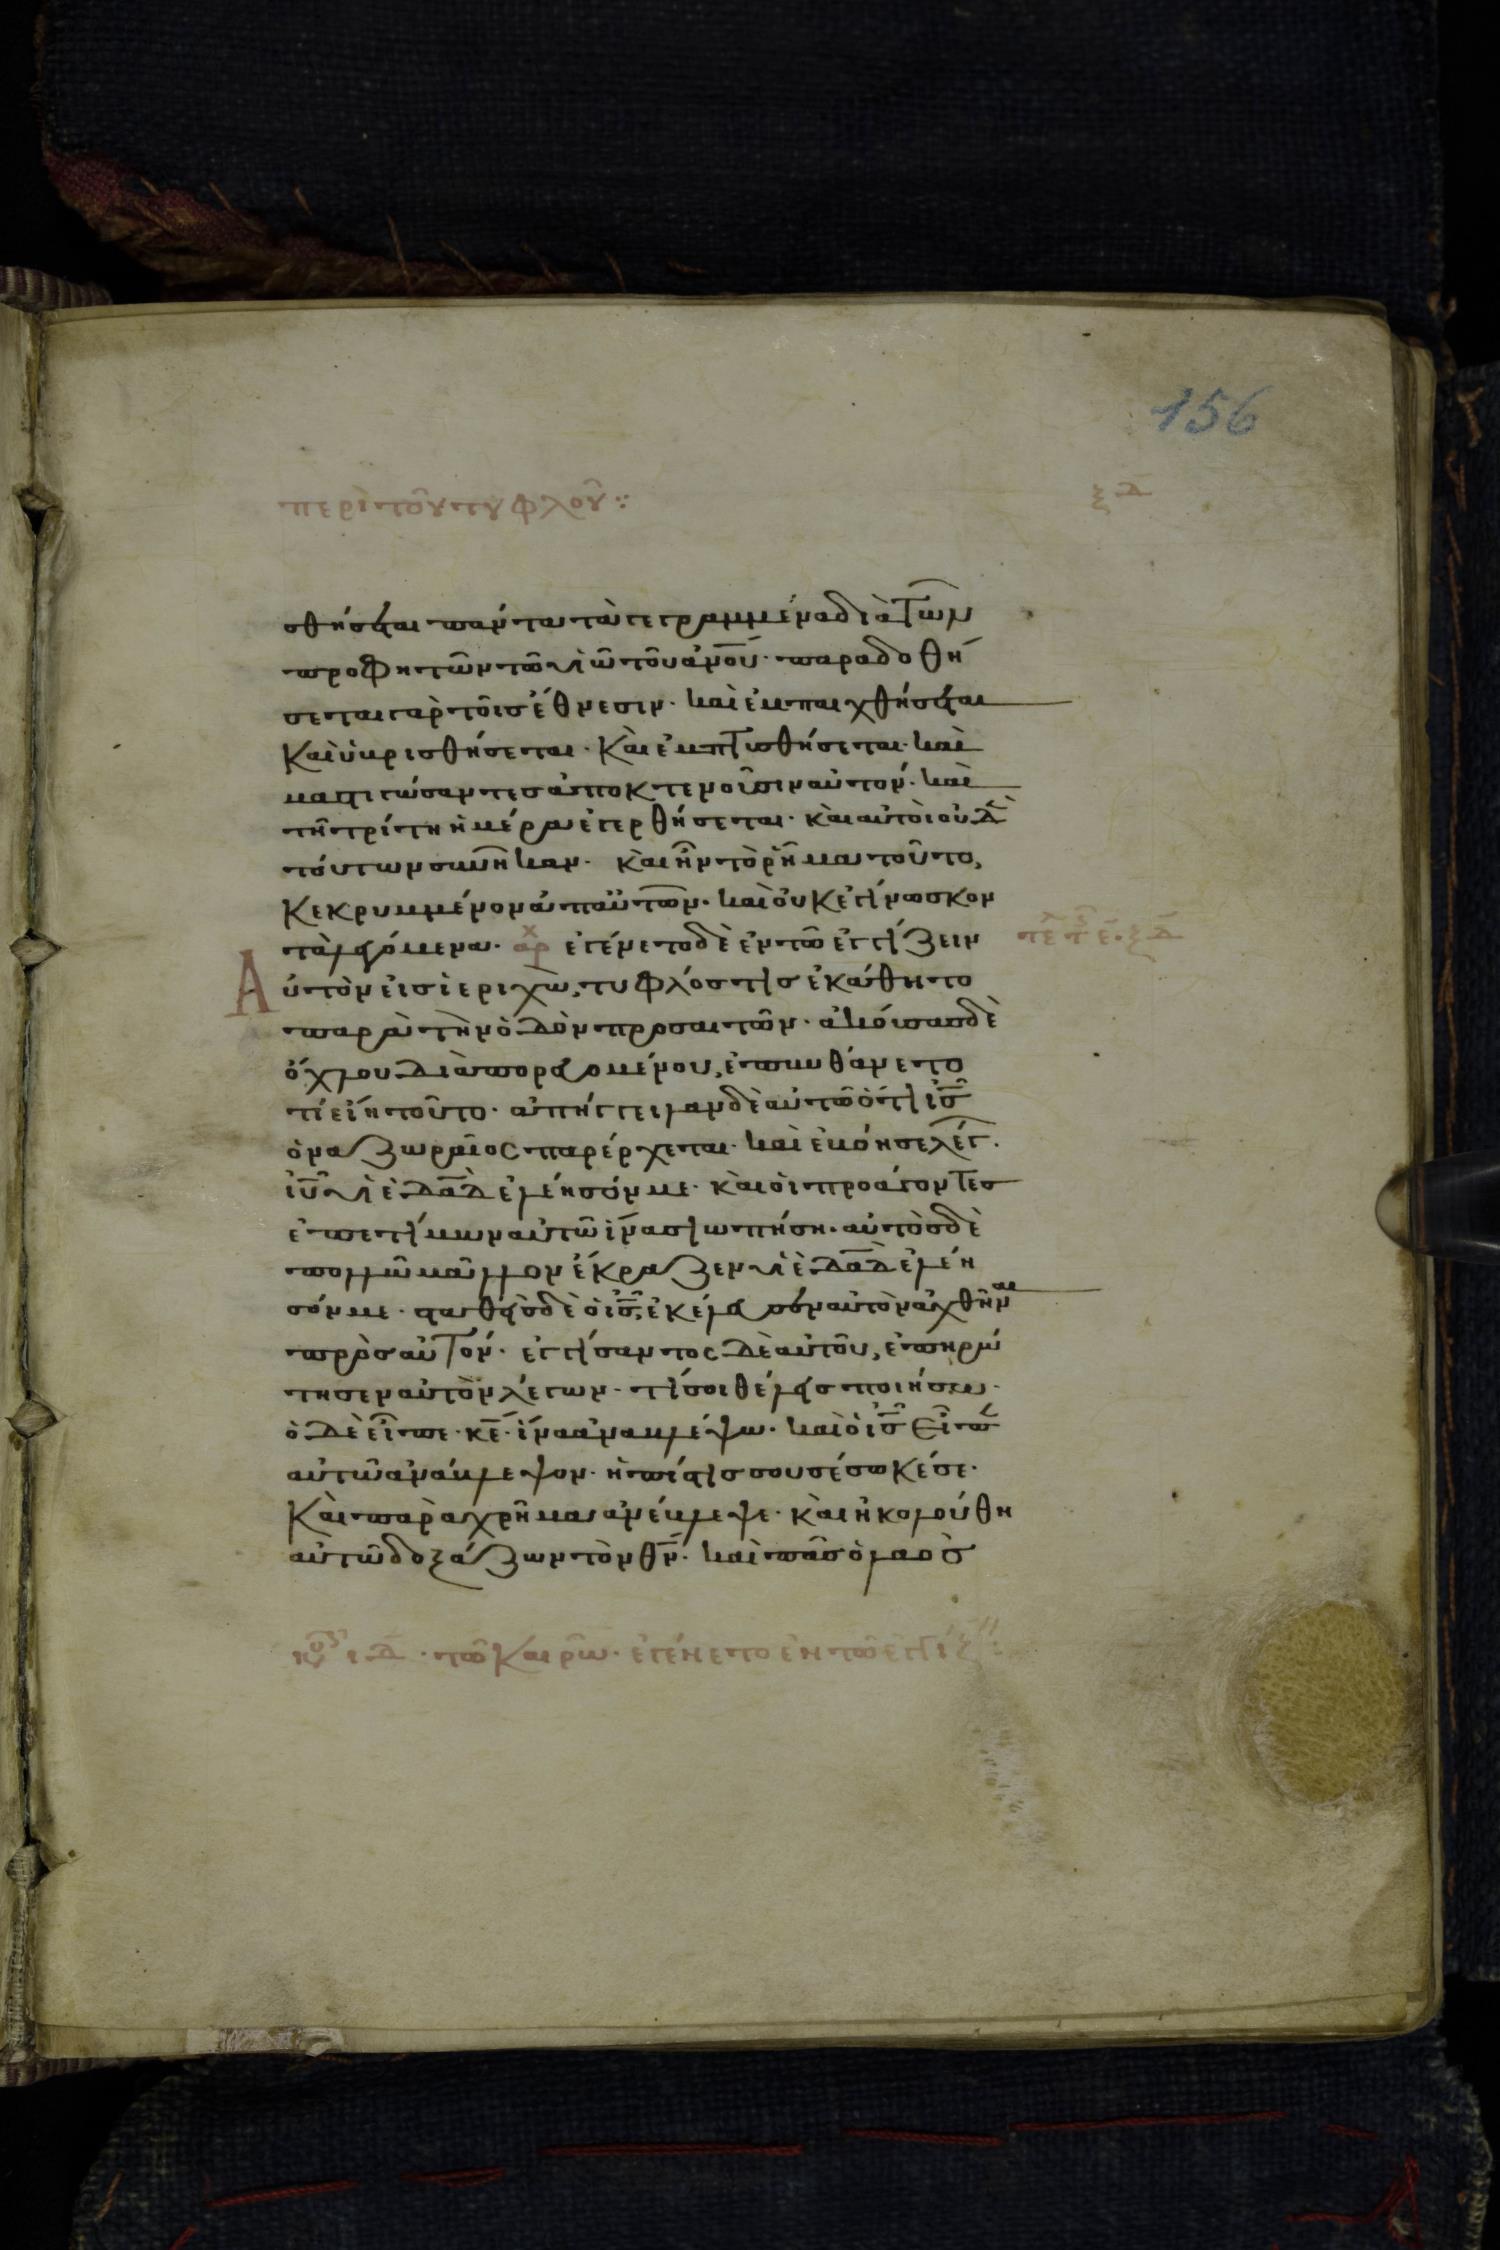 156
περὶ τοῦ τυφλοῦ ξδ
σθήσεται πάντα τὰ γεγραμμένα διὰ τῶν
προφητῶν τῶ υἱῶ τοῦ ἀν̅ο̅υ̅· παραδοθή
σεται γὰρ τοῖς ἔθνεσιν· καὶ ἐμπαιχθήσεται
καὶ ὑβρισθήσεται· καὶ ἐμπτυσθήσεται· καὶ
μαστιγώσαντες ἀποκτενοῦσιν αὐτόν· καὶ
τῆ τρίτη ἡμέρα ἐγερθήσεται· καὶ αὐτοὶ οὐδὲ
τούτων συνῆκαν· καὶ ἦν τὸ ῥῆμα τοῦτο,
κεκρυμμένον ἀπ αὐτῶν· καὶ οὐκ ἐγίνωσκον
τὰ λεγόμενα· αρχ ἐγένετο δὲ ἐν τῶ ἐγγίζειν
αὐτὸν εἰς ἱεριχὼ, τυφλός τις ἐκάθητο
παρὰ τὴν ὁδὸν προσαιτῶν· ἀκούσας δὲ
ὄχλου διαπορευομένου, ἐπυνθάνετο
τί εἴη τοῦτο· ἀπήγγειλαν δὲ αὐτῶ ὅτι ι̅ς̅
ὁ ναζωραῖος παρέρχεται· καὶ ἐβόησε λέγ·
ι̅υ̅ υἱὲ δ̅α̅δ̅ ἐλέησόν με· καὶ οἱ προάγοντες
ἐπετίμων αὐτῶ ἵνα σιωπήση· αὐτὸς δὲ
πολλῶ μᾶλλον ἔκραζεν υἱὲ δ̅α̅δ̅ ἐλέη
σόν με· σταθεὶς δὲ ὁ ι̅ς̅, ἐκέλευσεν αὐτὸν ἀχθῆναι
πρὸς αὐτόν· ἐγγίσαντος δὲ αὐτοῦ, ἐπηρώ
τησεν αὐτὸν λέγων· τί σοι θέλεις ποιήσω·
ὁ δὲ εἶπε· κ̅ε̅· ἵνα ἀναβλέψω· καὶ ὁ ι̅ς̅ εἶπεν
αὐτῶ ἀνάβλεψον· ἡ πίστις σου σέσωκέ σε·
καὶ παραχρῆμα ἀνέβλεψε· καὶ ἠκολούθη
αὐτῶ δοξάζων τὸν θ̅ν̅· καὶ πᾶς ὁ λαὸς
ιδ · τῶ καιρῶ· ἐγένετο ἐν τῶ ἐγγίζ